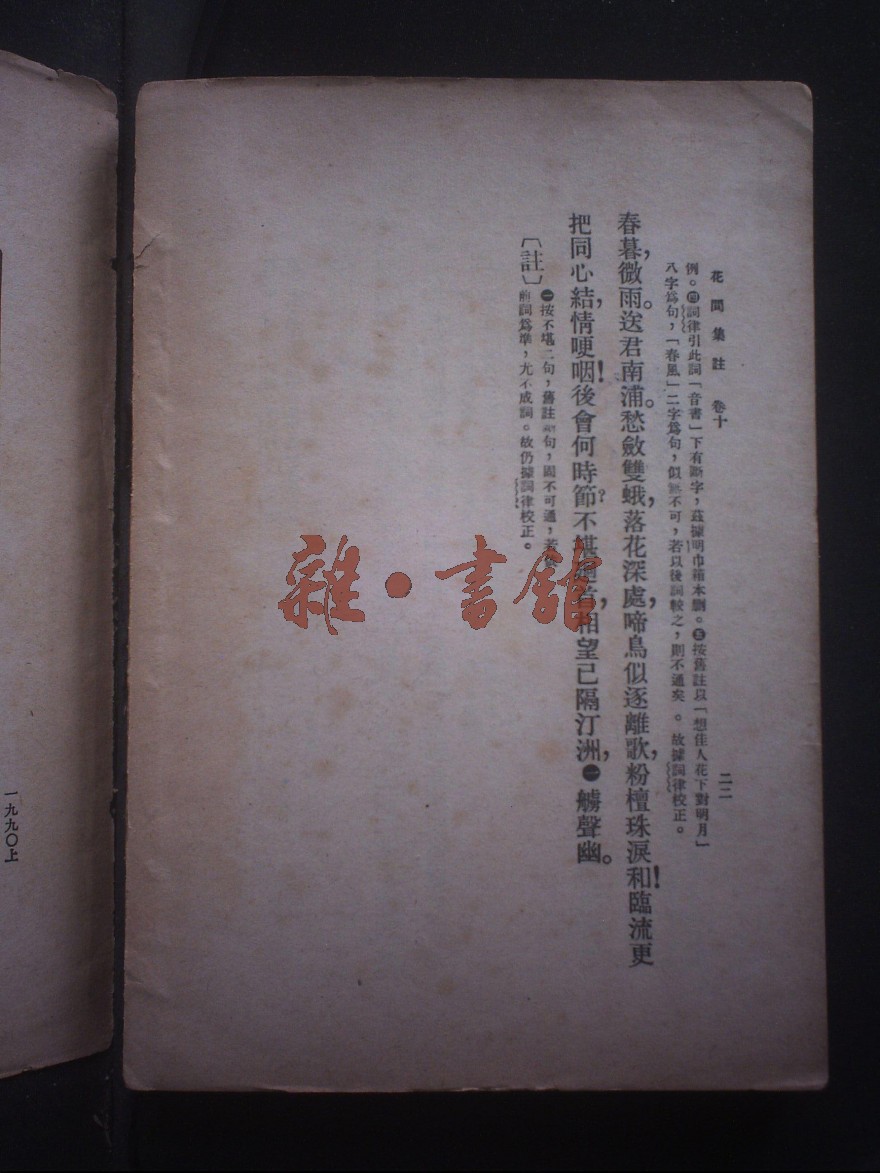 花間集註 卷十 二二
例。㊃詞律引此詞「音書」下有斷字,茲據明巾箱本刪。㊄按舊註以「想佳人花下對明月」
八字爲句,「春風」二字爲句,似無不可,若以後詞較之,則不通矣。故據詞律校正。
春暮,微雨。送君南浦。愁斂雙蛾,落花深處,啼鳥似逐離歌,粉檀珠淚和!臨流更
把同心結,情哽咽!後會何時節?不堪迴首,相望已隔汀洲,㊀艣聲幽。
〔註〕㊀按不堪二句,舊註 句,固不可通,若
前詞爲準,尤不成詞。故仍據詞律校正。
雜·書館
一九九〇上